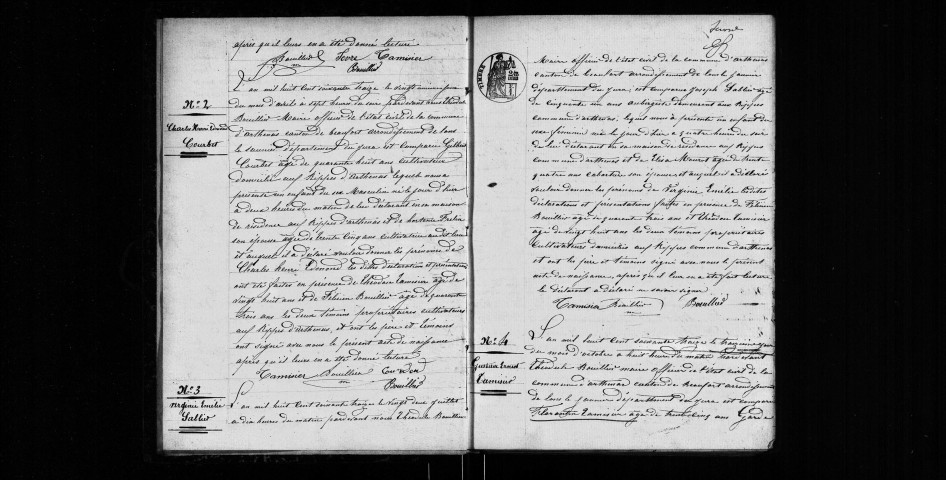 après qu'il leurs en a été donné lecture
Bouillier Tamisier
Bouillier
N° 2
Charles Henri Edmond
Courbet
L'an mil huit cent soixante treize le vingt
du mois d'avril à sept heures du soir par devant nous Théodule
Bouillier Maire officier de l'état civil de la commune
d'arthenas canton de beaufort arrondissement de lons
le saunier département du jura est comparu
Courbet âgé de quarante huit ans cultivateur
domicilié aux Rippes d'Arthenas lequel nous a
présenté un enfant du sexe Masculin né le jour d'hier
à deux heures du matin de lui déclarant en sa maison
de résidence aux Rippes d'arthenas et de hortense
son épouse âgée de trente cinq ans cultivatrice au dit lieu
et auquel il a déclaré vouloir donner les prénoms de
Charles henri Edmond les dites déclaration et présentation
ont été faites en présence de théodore Tamisier âgé de
vingt huit ans et de Félicien Bouillier âgé de quarante
trois ans les deux témoins propriétaires cultivateurs
aux Rippes d'arthenas, et ont les père et témoins
ont signé avec nous le présent acte de naissance
après qu'il leurs en a été donné lecture
Tamisier Bouillier Courbet
Bouillier
N° 3
Virginie Emélie
L'an mil huit cent soixante treize le vingt deux juillet
à dix heures du matin par devant nous Théodule Bouillier
TIMBRE
Maire officier de l'état civil de la commune d'arthenas
canton de beaufort arrondissement de lons le saunier
département du jura, est comparu Joseph âgé
de cinquante un ans aubergiste demeurant aux Rippes
commune d'arthenas, lequel nous a présenté un enfant du
sexe féminin née le jour d'hier à quatre heures du soir
de lui déclarant en sa maison de résidence aux Rippes
commune d'arthenas et de Elisa âgée de trente
quatre ans son épouse, et auquel il a déclaré
vouloir donner les prénoms de Virginie Emélie les dites
déclarations et présentations faites en présence de Félicien
Bouillier âgé de quarante trois ans et théodore Tamisier
âgé de vingt huit ans les deux témoins propriétaires
cultivateurs domiciliés aux Rippes commune d'arthenas
et ont les père et témoins signé avec nous le présent
acte de naissance, après qu'il leur en a été fait lecture
le déclarant a déclaré ne savoir signer
Tamisier Bouillier Bouillier
N° 4
Ernest
Tamisier
L'an mil huit cent soixante treize le
du mois d'octobre à huit heures du matin par devant
théodule Bouillier maire officier de l'état civil de la
commune d'arthenas canton de Beaufort arrondissement
de lons le saunier département du jura, est comparu
Tamisier âgé de trente cinq ans Garde